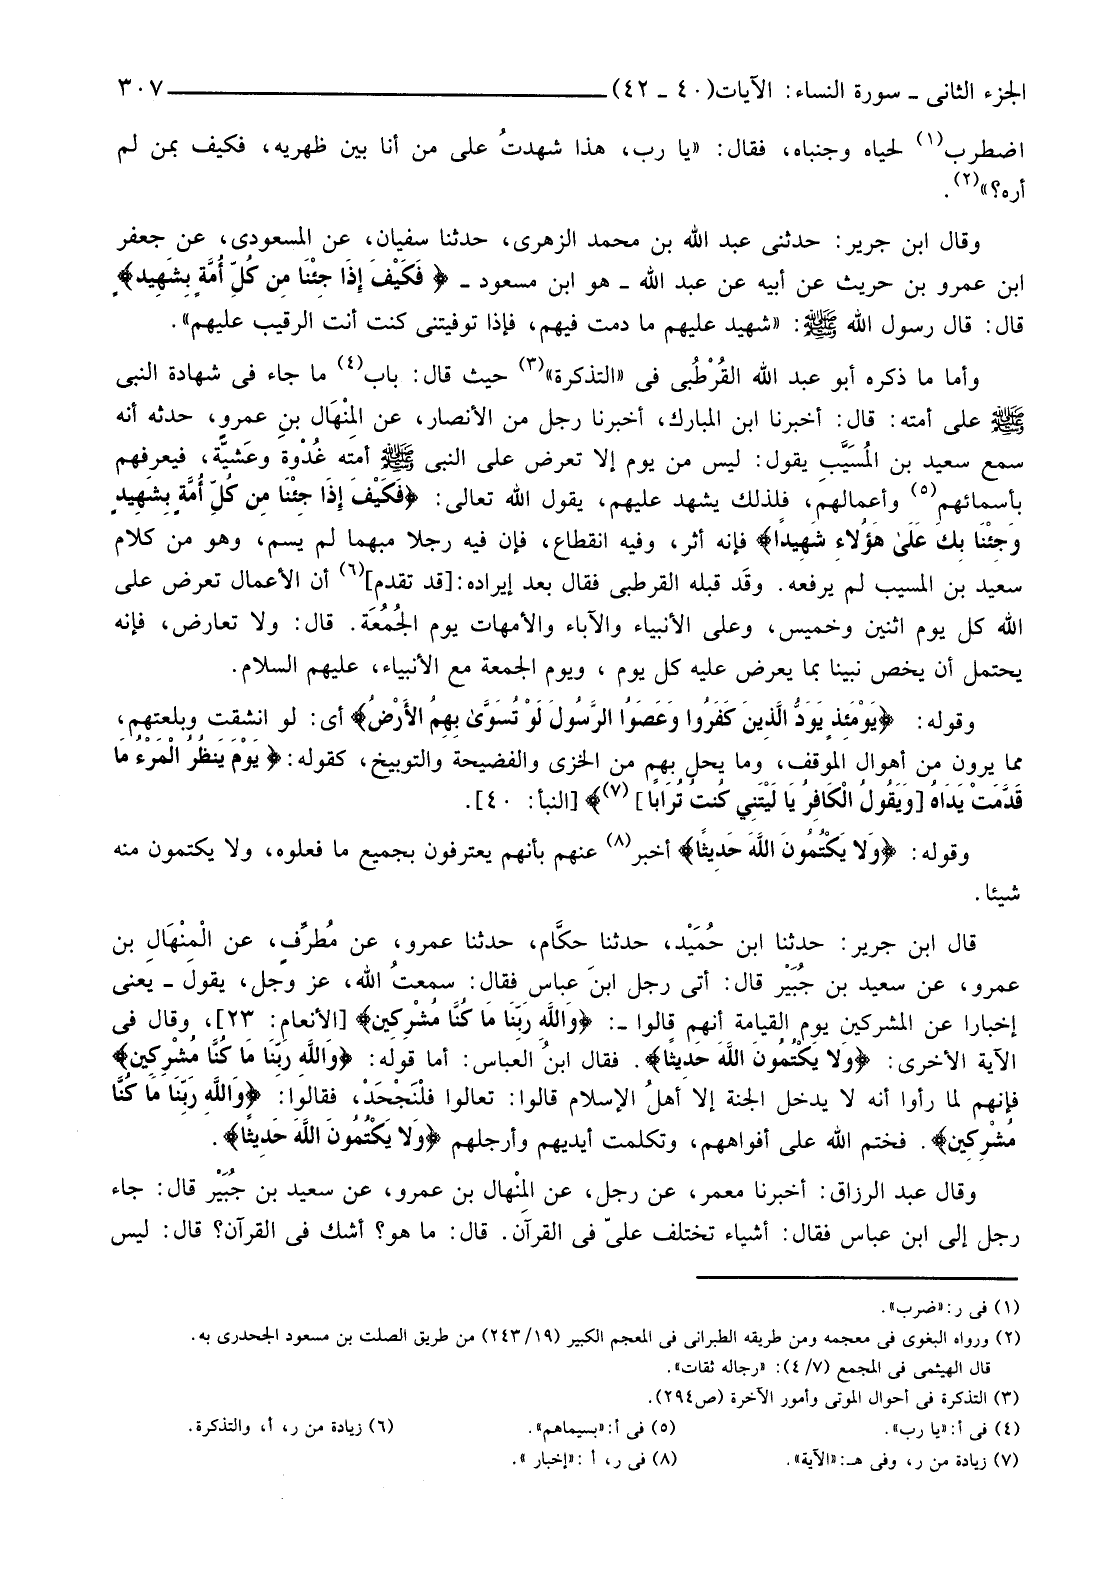 الجزء الثانى ـ سورة النساء: الآيات(٤٠ ـ ٤٢) ٣٠٧
اضطرب(١) لحياه وجنباه، فقال: «يا رب، هذا شهدتُ على من أنا بين ظهريه، فكيف بمن لم
أره؟»(٢).
وقال ابن جرير: حدثنى عبد الله بن محمد الزهرى، حدثنا سفيان، عن المسعودى، عن جعفر
ابن عمرو بن حريث عن أبيه عن عبد الله ـ هو ابن مسعود ـ ﴿ فَكَيْفَ إِذَا جِئْنَا مِن كُلِّ أُمَّةٍ بِشَهِيدٍ﴾
قال: قال رسول الله ﷺ: «شهيد عليهم ما دمت فيهم، فإذا توفيتنى كنت أنت الرقيب عليهم».
وأما ما ذكره أبو عبد الله القُرْطُبى فى «التذكرة»(٣) حيث قال: باب(٤) ما جاء فى شهادة النبى
ﷺ على أمته: قال: أخبرنا ابن المبارك، أخبرنا رجل من الأنصار، عن المِنْهَال بنِ عمرو، حدثه أنه
سمع سعيد بن المُسَيَّبِ يقول: ليس من يوم إلا تعرض على النبى ﷺ أمته غُدْوة وعَشيَّة، فيعرفهم
بأسمائهم(٥) وأعمالهم، فلذلك يشهد عليهم، يقول الله تعالى: ﴿فَكَيْفَ إِذَا جِئْنَا مِن كُلِّ أُمَّةٍ بِشَهِيدٍ
وَجِئْنَا بِكَ عَلَىٰ هَؤُلاءِ شَهِيدًا﴾ فإنه أثر، وفيه انقطاع، فإن فيه رجلا مبهما لم يسم، وهو من كلام
سعيد بن المسيب لم يرفعه. وقَد قبله القرطبى فقال بعد إيراده:[قد تقدم](٦) أن الأعمال تعرض على
الله كل يوم اثنين وخميس، وعلى الأنبياء والآباء والأمهات يوم الجُمُعَة. قال: ولا تعارض، فإنه
يحتمل أن يخص نبينا بما يعرض عليه كل يوم ، ويوم الجمعة مع الأنبياء، عليهم السلام.
وقوله: ﴿يَوْمَئِذٍ يَوَدُّ الَّذِينَ كَفَرُوا وَعَصَوُا الرَّسُولَ لَوْ تُسَوَّىٰ بِهِمُ الأَرْضُ﴾ أى: لو انشقت وبلعتهم،
مما يرون من أهوال الموقف، وما يحل بهم من الخزى والفضيحة والتوبيخ، كقوله:﴿ يَوْمَ يَنظُرُ الْمَرْءُ مَا
قَدَّمَتْ يَدَاهُ [وَيَقُولُ الْكَافِرُ يَا لَيْتَنِي كُنتُ تُرَابًا ](٧)﴾ [النبأ: ٤٠].
وقوله: ﴿وَلا يَكْتُمُونَ اللَّهَ حَدِيثًا﴾ أخبر(٨) عنهم بأنهم يعترفون بجميع ما فعلوه، ولا يكتمون منه
شيئا.
قال ابن جرير: حدثنا ابن حُمَيْد، حدثنا حكَّام، حدثنا عمرو، عن مُطرِّفٍ، عن الْمِنْهَالِ بن
عمرو، عن سعيد بن جُبَيْر قال: أتى رجل ابنَ عباس فقال: سمعتُ الله، عز وجل، يقول ـ يعنى
إخبارا عن المشركين يوم القيامة أنهم قالوا ـ: ﴿وَاللَّهِ رَبِّنَا مَا كُنَّا مُشْرِكِين﴾ [الأنعام: ٢٣]، وقال فى
الآية الأخرى: ﴿وَلا يَكْتُمُونَ اللَّهَ حَدِيثًا﴾. فقال ابنُ العباس: أما قوله: ﴿وَاللَّهِ رَبِّنَا مَا كُنَّا مُشْرِكِين﴾
فإنهم لما رأوا أنه لا يدخل الجنة إلا أهلُ الإسلام قالوا: تعالوا فلْنَجْحَدْ، فقالوا: ﴿وَاللَّهِ رَبِّنَا مَا كُنَّا
مُشْرِكِين﴾. فختم الله على أفواههم، وتكلمت أيديهم وأرجلهم ﴿وَلا يَكْتُمُونَ اللَّهَ حَدِيثًا﴾.
وقال عبد الرزاق: أخبرنا معمر، عن رجل، عن المِنْهال بن عمرو، عن سعيد بن جُبَيْر قال: جاء
رجل إلى ابن عباس فقال: أشياء تختلف علىّ فى القرآن. قال: ما هو؟ أشك فى القرآن؟ قال: ليس
(١) فى ر:«ضرب».
(٢) ورواه البغوى فى معجمه ومن طريقه الطبرانى فى المعجم الكبير (١٩/ ٢٤٣) من طريق الصلت بن مسعود الجحدرى به.
قال الهيثمى فى المجمع (٧/ ٤): «رجاله ثقات».
(٣) التذكرة فى أحوال الموتى وأمور الآخرة (ص٢٩٤).
(٤) فى أ:«يا رب». (٥) فى أ:«بسيماهم». (٦) زيادة من ر، أ، والتذكرة.
(٧) زيادة من ر، وفى هـ:«الآية». (٨) فى ر، أ :«إخبار ».